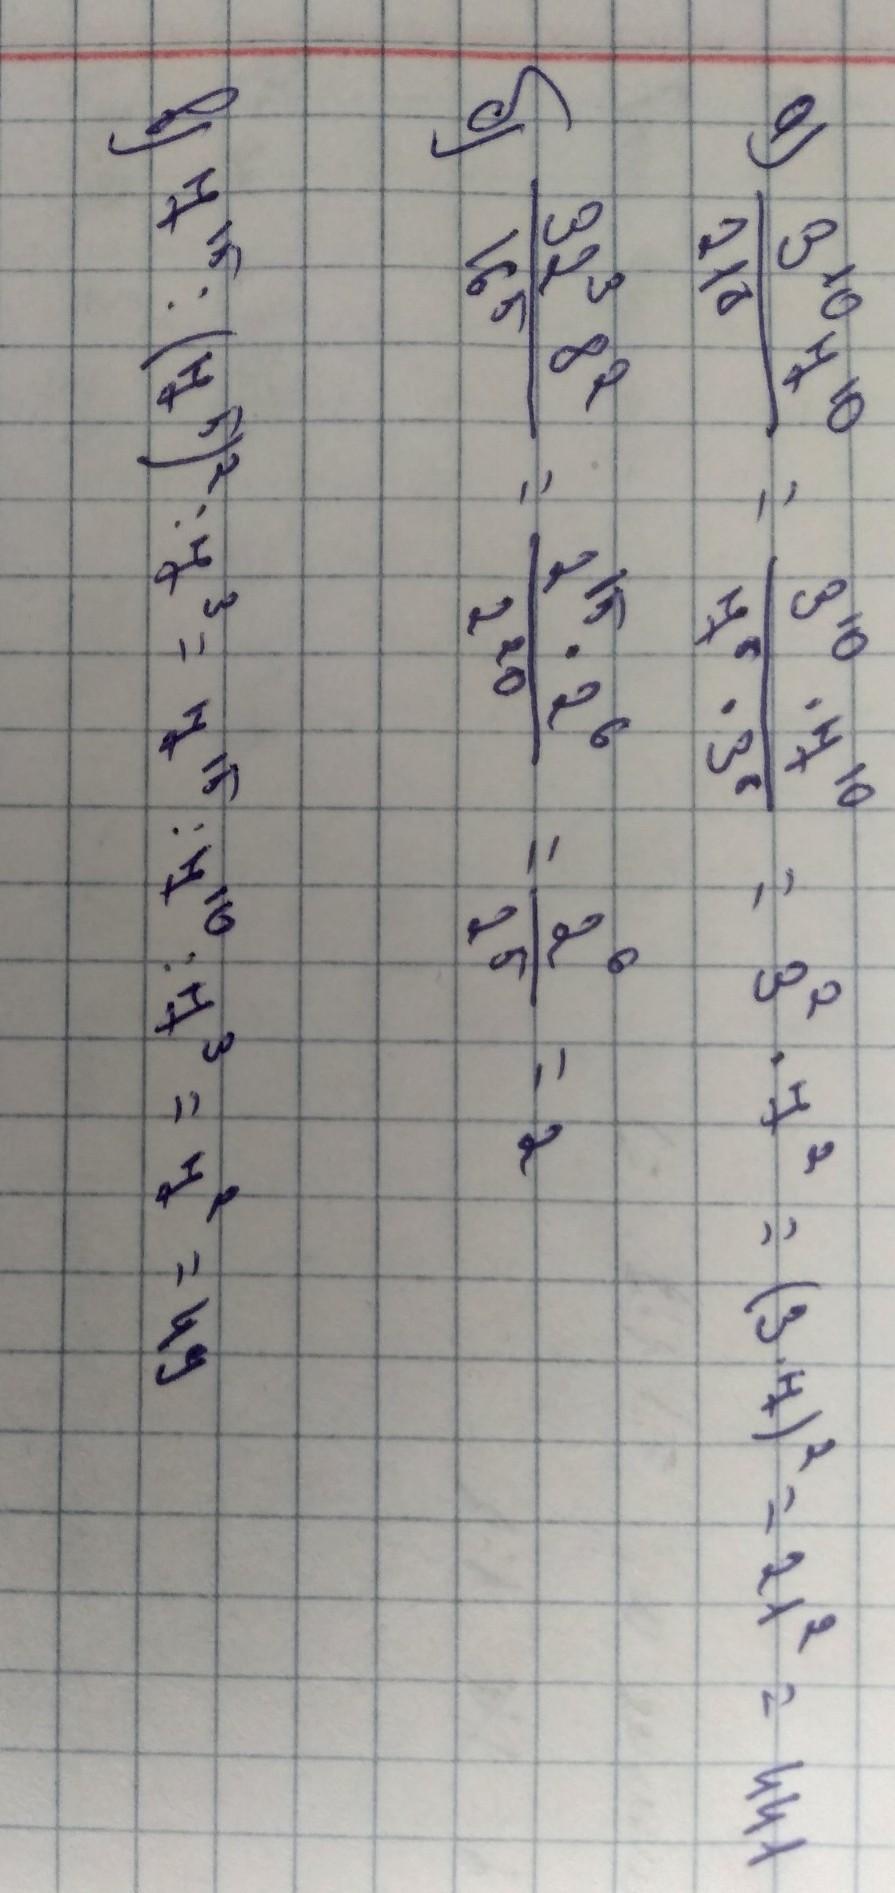 а) 3^10 7^10 / 21^8 = 3^10 · 7^10 / 7^8 · 3^8 = 3^2 · 7^2 = (3·7)^2 = 21^2 = 441
б) 32^3 8^2 / 16^5 = 2^15 · 2^6 / 2^20 = 2^6 / 2^5 = 2
в) 7^15 : (7^5)^2 : 7^3 = 7^15 : 7^10 : 7^3 = 7^2 = 49